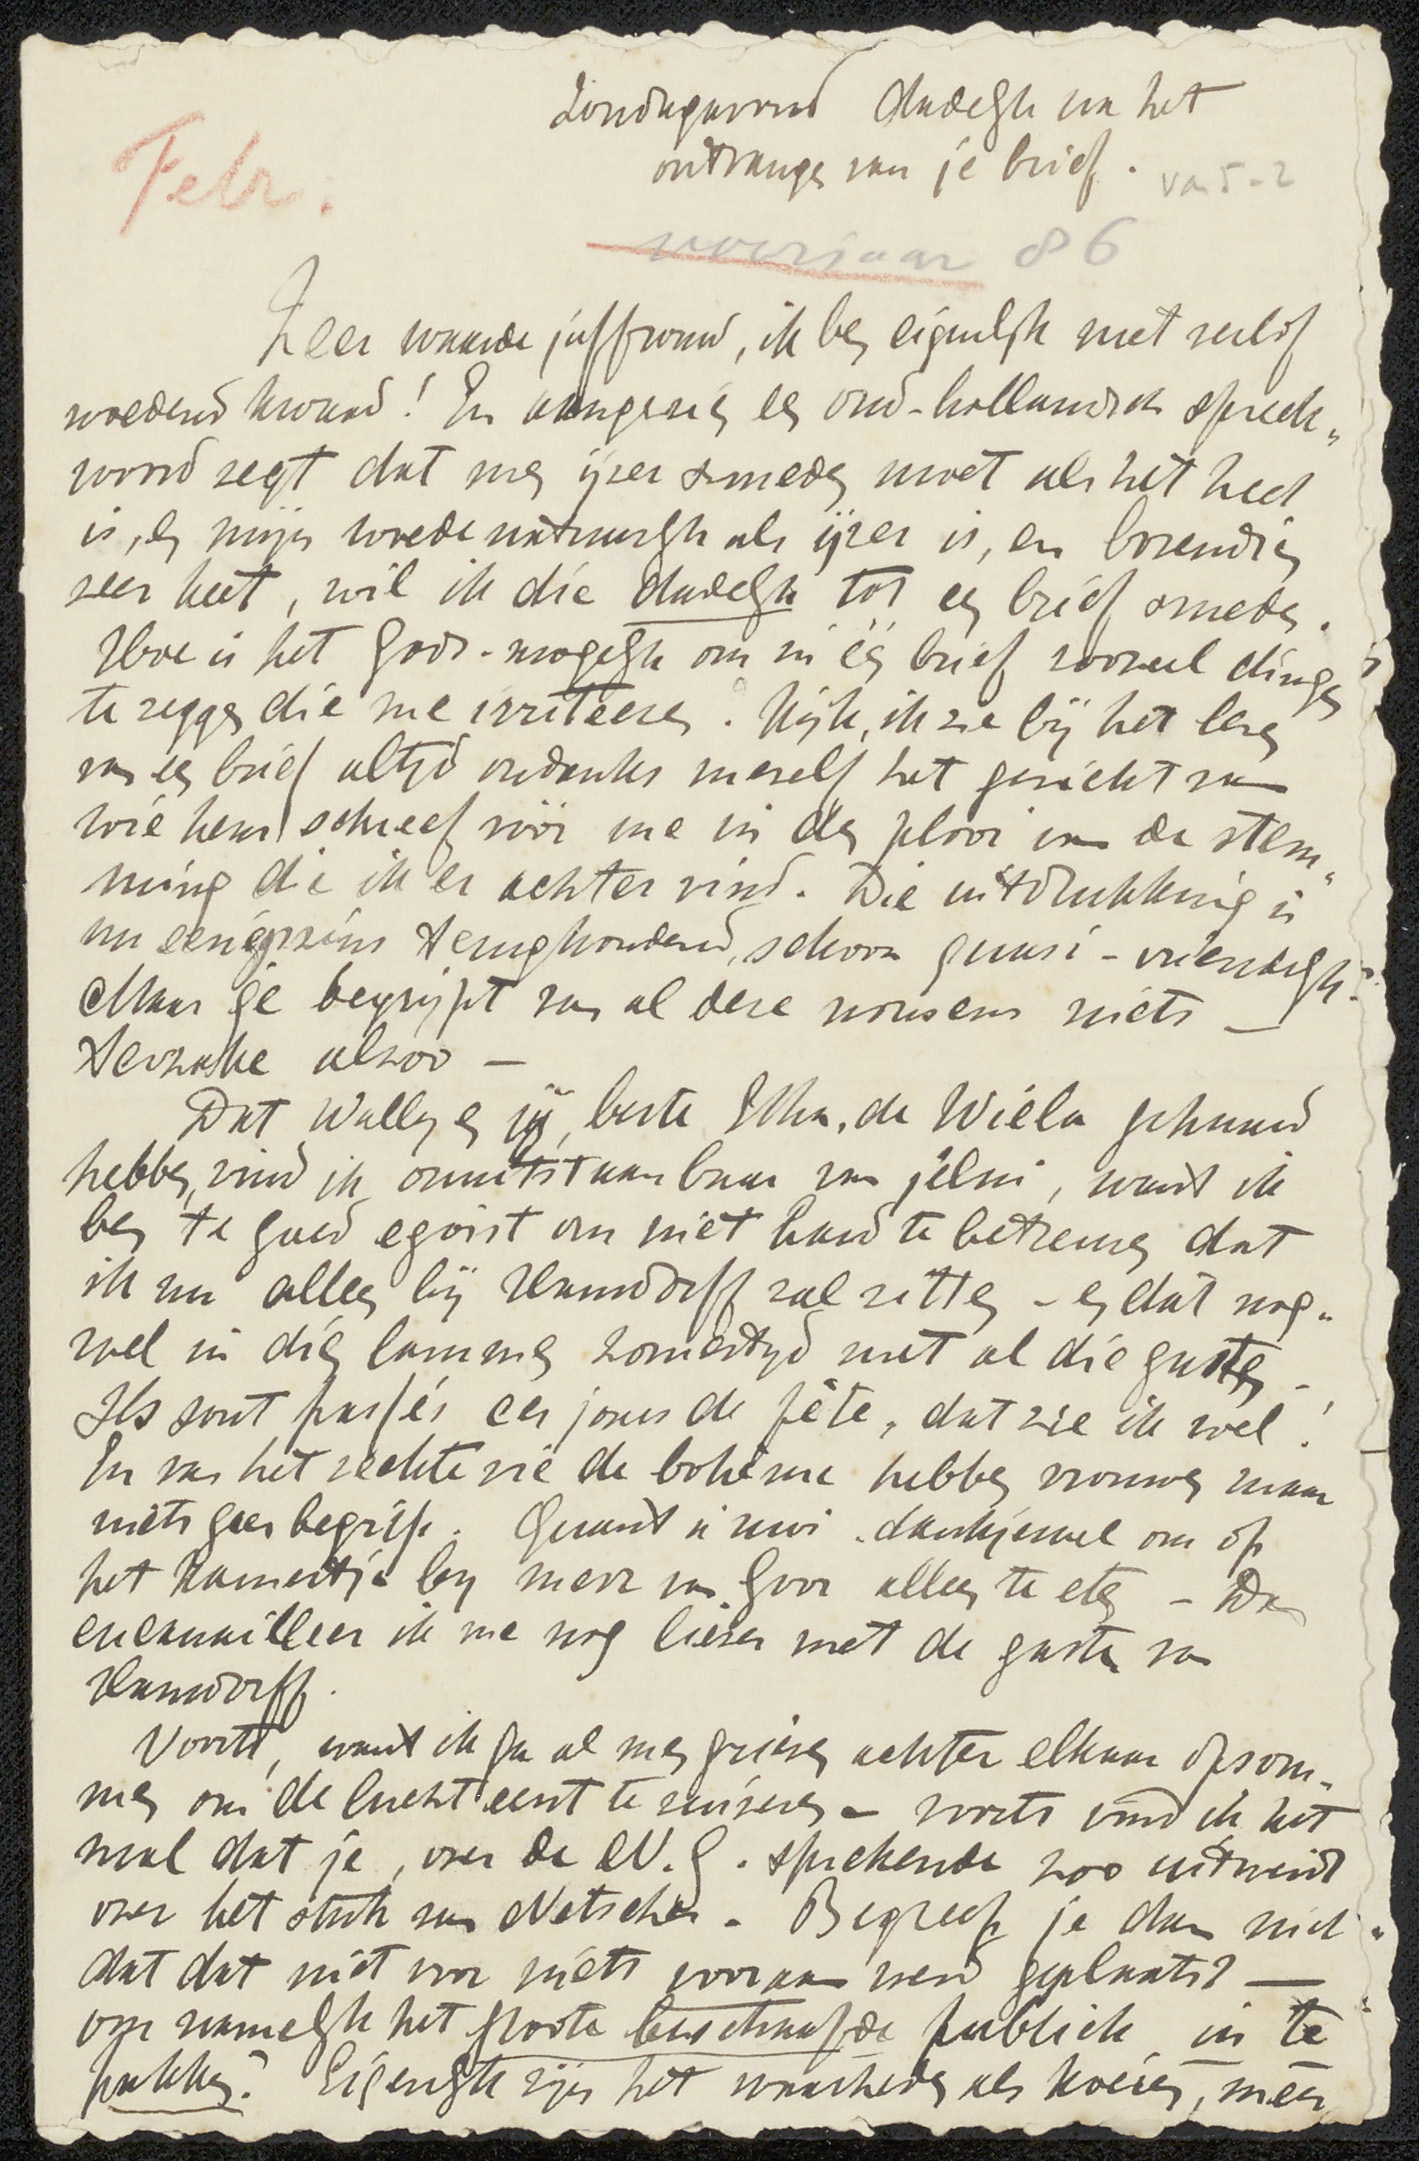 Zondagavond dadelijk na het
ontvangen van je brief. van 5-2
Febr.
voorjaar 86
Zeer waarde juffrouw, ik ben eigenlijk met verlof
woedend kwaad! En aangezien een oud-hollandsch spreek„
woord zegt dat men ijzer smeden moet als het heet
is, en mijn woede natuurlijk als ijzer is, en bovendien
zeer heet, wil ik die dadelijk tot een brief smeden.
Hoe is het Gods-mogelijk om in één brief zooveel dingen
te zeggen die me irriteeren. Kijk, ik zie bij het lezen
van een brief altijd ondanks mezelf het gezicht van
wie hem schreef vóór me in den plooi van de stem„
ming die ik er achter vind. Die uitdrukking is
nu eenigszins terughoudend, schoon quasi-vriendelijk.
Maar je begrijpt van al deze nonsens niets —
Terzake alzoo —
Dat Wally en jij, beste Etha, de Wiela gehuurd
hebben, vind ik onuitstaanbaar van jelui, want ik
ben te goed egoist om niet hard te betreuren dat
ik nu alleen bij Hamdorff zal zitten – en dat nog„
wel in dien lammen zomertijd met al die gasten –
Ils sont passés ces jours de fête, dat zie ik wel!
En van het rechte vie de bohème hebben vrouwen maar
niets geen begrip. Quant à moi . dankjewel om op
het kamertje bij mevr van Goor alleen te eten – Dan
encanailleer ik me nog liever met de gasten van
Hamdorff.
Voorts, want ik ga al men grieven achter elkaar opsom„
men om de lucht eerst te zuiveren – voorts vind ik het
mal dat je, over de N.G. sprekende zoo uitweidt
over het stuk van Netscher. Begreep je dan niet
dat dat niet voor niets vooraan werd geplaatst —
om namelijk het groote beschaafde publiek in te
pakken? Eigenlijk zijn het waarheden als koeien, meer